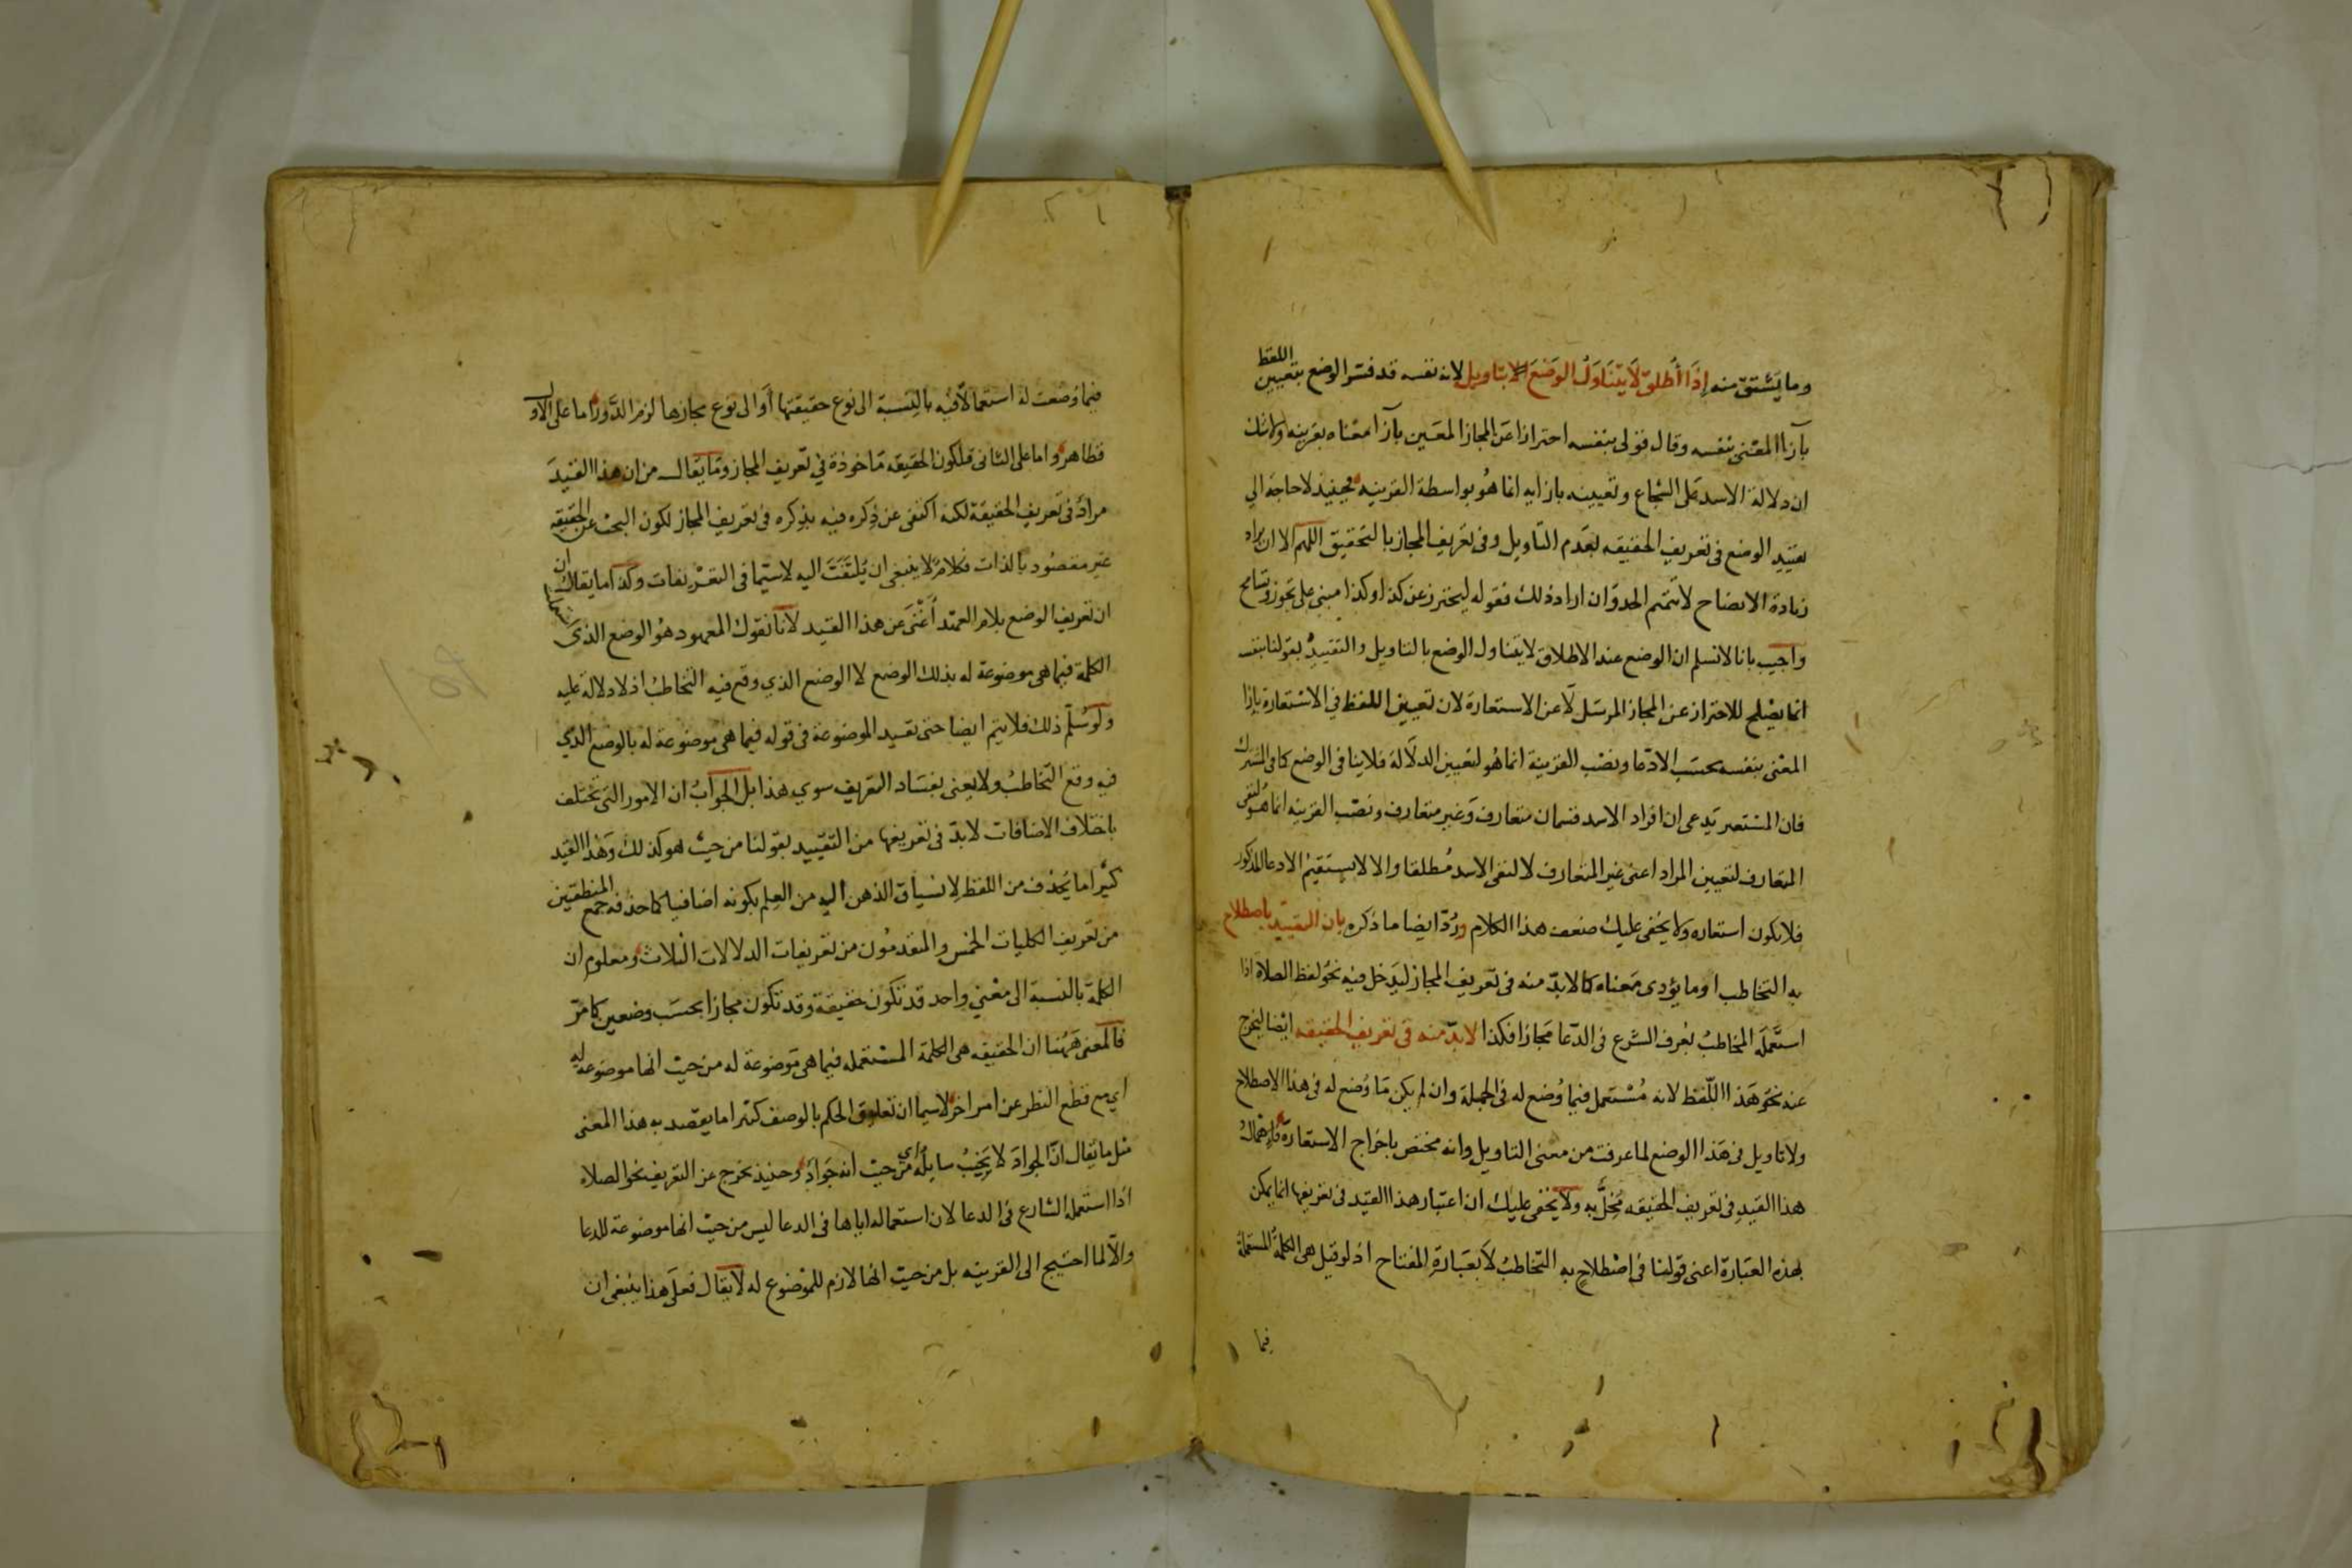 وما يشتق منه إذا أطلق لا يتناول الوضع بتاويل لانه نفسه قد فسر الوضع بتعيين اللفظ
بآزا المعنى بنفسه وقال قولى بنفسه احترازا عن المجاز المعين بآزا معناه بقرينه ولا شك
ان دلالة الاسد على الشجاع وتعيينه بازايه انما هو بواسطة القرينه فحينئذ لا حاجة الي
تقييد الوضع فى تعريف الحقيقه بعدم التاويل وفى تعريف المجاز بالتحقيق اللهم الا ان يراد
زيادة الايضاح لا تتميم الحد وان اراد ذلك فقوله ليحترز عن كذا وكذا مبنى على تجوز وتسامح
واجيب بانا لا نسلم ان الوضع عند الاطلاق لا يتناول الوضع بالتاويل والتقييد بقولنا بنفسه
انما يصلح للاحتراز عن المجاز المرسل لا عن الاستعارة لان تعيين اللفظ في الاستعارة بازا
المعنى بنفسه بحسب الادعا ونصب القرينة انما هو لتعيين الدلالة فلا ينافى الوضع كما فى المشترك
فان المستعير يدعى ان افراد الاسد قسمان متعارف وغير متعارف ونصب القرينه انما هو لنفى
المتعارف لتعيين المراد اعنى غير المتعارف لا لنفى الاسد مطلقا والا لا يستقيم الادعا المذكور
فلا يكون استعاره ولا يخفى عليك ضعف هذا الكلام ورد ايضا ما ذكره بان التقييد باصطلاح
به التخاطب او ما يؤدى معناه كما لا بد منه فى تعريف المجاز ليدخل فيه نحو لفظ الصلاة اذا
استعمله المخاطب بعرف الشرع فى الدعا مجازا فكذا لا بد منه فى تعريف الحقيقه ايضا ليخرج
عنه نحو هذا اللفظ لانه مستعمل فيما وضع له فى الجملة وان لم يكن ما وضع له فى هذا الاصطلاح
ولا تاويل فى هذا الوضع لما عرفت من معنى التاويل وانه مختص باخراج الاستعارة فاهمال
هذا القيد فى تعريف الحقيقه مخل به ولا يخفى عليك ان اعتبار هذا القيد فى تعريفها انما يمكن
بهذه العبارة اعنى قولنا فى اصطلاح به التخاطب لا بعبارة المفتاح اذ لو قيل هى الكلمة المستعملة
فيما
فيما وضعت له استعمالا فيه بالنسبة الى نوع حقيقتها أو الى نوع مجازها لزم الدور اما على الاول
فظاهر واما على الثانى فلكون الحقيقه ماخوذة في تعريف المجاز وما يقال من ان هذا القيد
مراد فى تعريف الحقيقة لكنه اكتفى عن ذكره فيه بذكره فى تعريف المجاز لكون البحث عن الحقيقه
غير مقصود بالذات فكلام لا ينبغى ان يلتفت اليه لا سيما فى التعريفات وكذا ما يقال
ان تعريف الوضع بلام العهد أغنى عن هذا القيد لانا نقول المعهود هو الوضع الذى
الكلمة فيما هى موضوعة له بذلك الوضع لا الوضع الذي وقع فيه التخاطب اذ لا دلالة عليه
ولو سلم ذلك فلا يتم ايضا حتى تقيد الموضوعة فى قوله فيما هى موضوعة له بالوضع الذي
فيه وقع التخاطب ولا يعنى بفساد التعريف سوي هذا بل الجواب ان الامور التى تختلف
باختلاف الاضافات لا بد فى تعريفها من التقييد بقولنا من حيث هو كذلك وهذا القيد
كثيرا ما يحذف من اللفظ لانسياق الذهن اليه من العلم بكونه اضافيا كما حذفه جمع المنطقيين
من تعريف الكليات الخمس والمتقدمون من تعريفات الدلالات الثلاث ومعلوم ان
الكلمة بالنسبة الى معنى واحد قد تكون حقيقة وقد تكون مجازا بحسب وضعين كما مر
فالمعنى ههنا ان الحقيقه هى الكلمة المستعمله فيما هى موضوعة له من حيث انها موضوعة له
أي مع قطع النظر عن امر اخر لا سيما ان تعليق الحكم بالوصف كثيرا ما يقصد به هذا المعنى
مثل ما يقال ان الجواد لا يخيب سايله أي من حيث انه جواد وحينئذ يخرج عن التعريف نحو الصلاه
اذا استعمله الشارع فى الدعا لان استعماله اياها فى الدعا ليس من حيث انها موضوعة للدعا
والا لما احتيج الى القرينه بل من حيث انها لازم للموضوع له لا يقال فعلى هذا ينبغى ان